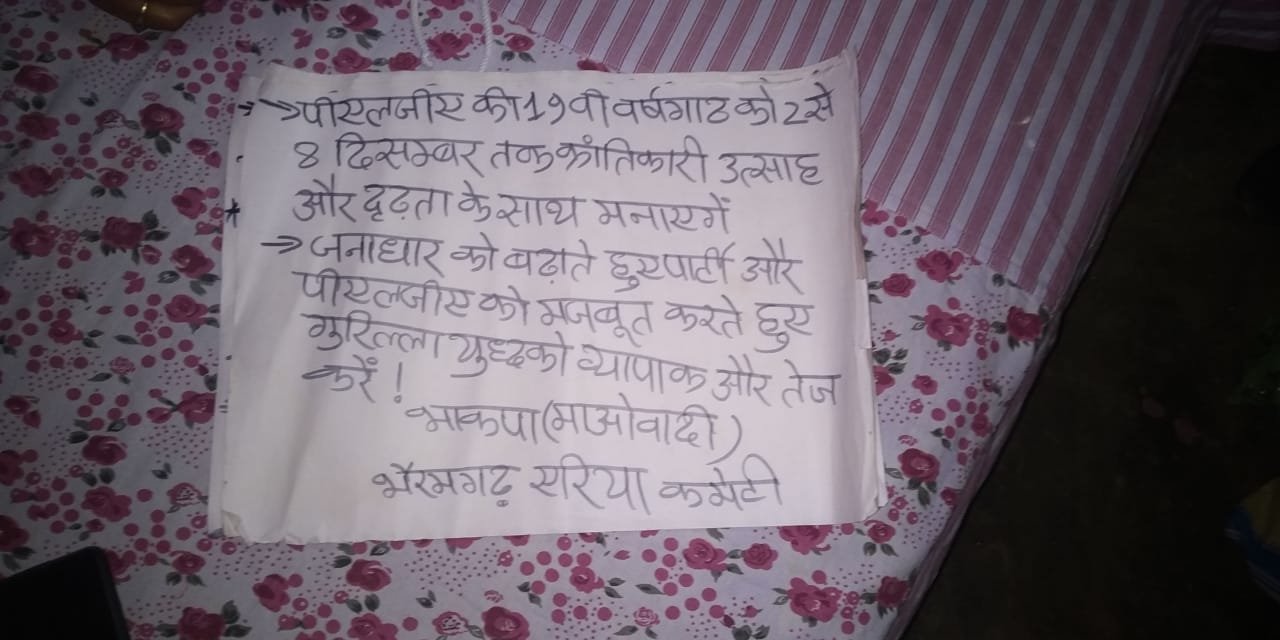 → पीएलजीए की 19 वी वर्षगाठ को 2 से
8 दिसम्बर तक क्रांतिकारी उत्साह
और दृढ़ता के साथ मनाएगें
→ जनाधार को बढ़ाते हुए पार्टी और
पीएलजीए को मजबूत करते हुए
गुरिल्ला युध्द को व्यापाक और तेज
करें !
भाकपा (माओवादी)
भैरमगढ़ एरिया कमेटी